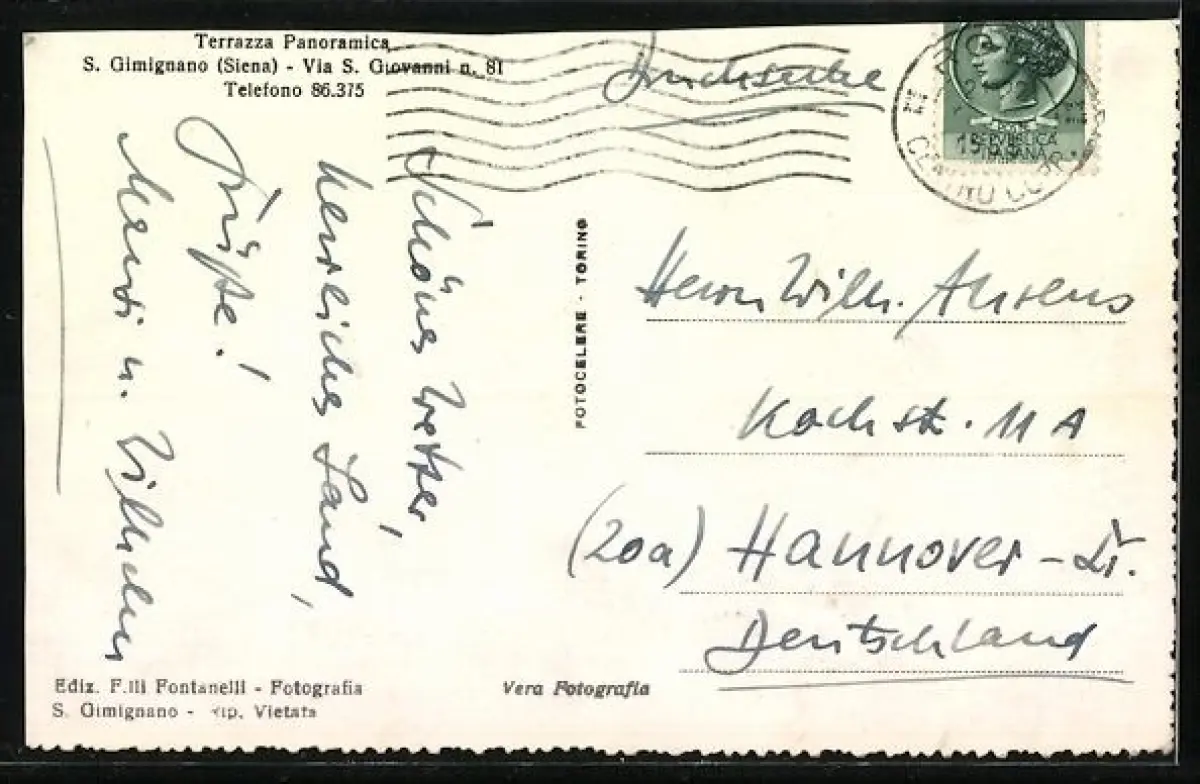 Terrazza Panoramica
S. Gimignano (Siena) - Via S. Giovanni n. 81
Telefono 86.375
Drucksache
REPVBBLICA
ITALIANA
Schönes Wetter,
herrliches Land,
Grüße!
u. Wilhelm
FOTOCELERE - TORINO
Herrn Wilh. Ahrens
Kochstr. 11 A
(20a) Hannover - Li.
Deutschland
Ediz. F.lli Fontanelli - Fotografia
S. Gimignano - Rip. Vietata
Vera Fotografia